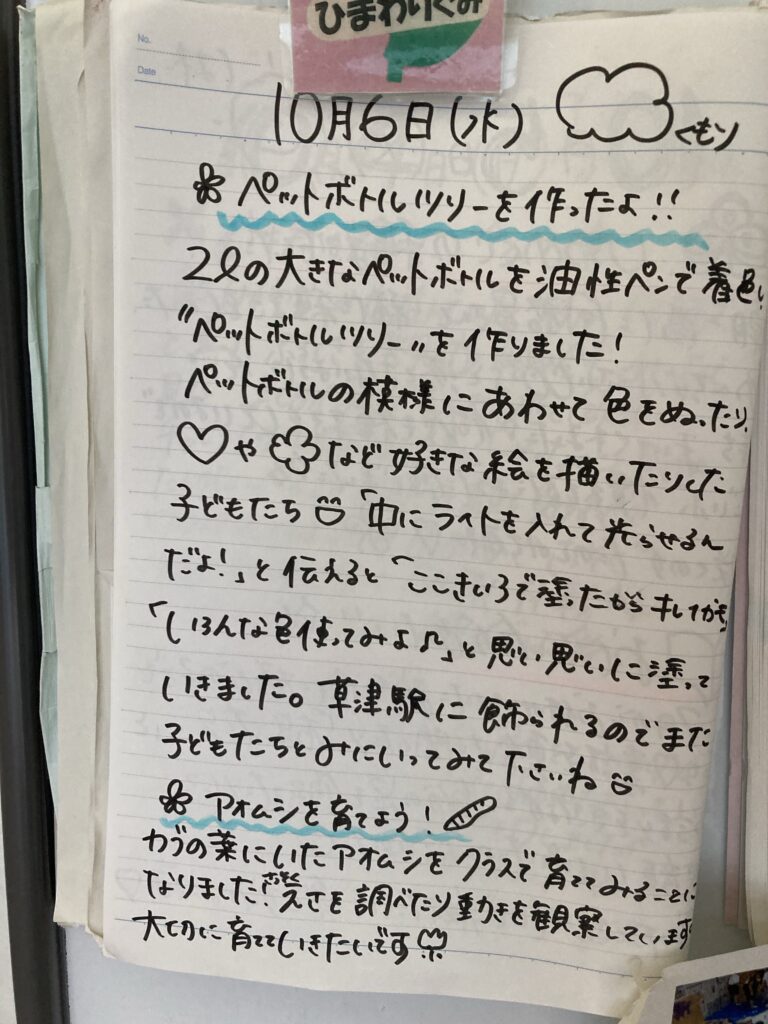 ひまわりぐみ
No.
Date
10月6日(水) くもり
ペットボトルツリーを作ったよ!!
2ℓの大きなペットボトルを油性ペンで着色し
"ペットボトルツリー"を作りました!
ペットボトルの模様にあわせて色をぬったり、
♡や など好きな絵を描いたりした
子どもたち 「中にライトを入れて光らせるん
だよ!」と伝えると「ここきいろで塗ったからキレイかも」
「いろんな色使ってみよ♪」と思い思いに塗って
いきました。草津駅に飾られるのでまた
子どもたちとみにいってみて下さいね
アオムシを育てよう!
カブの葉にいたアオムシをクラスで育ててみることに
なりました!さっそくえさを調べたり動きを観察しています
大切に育てていきたいです